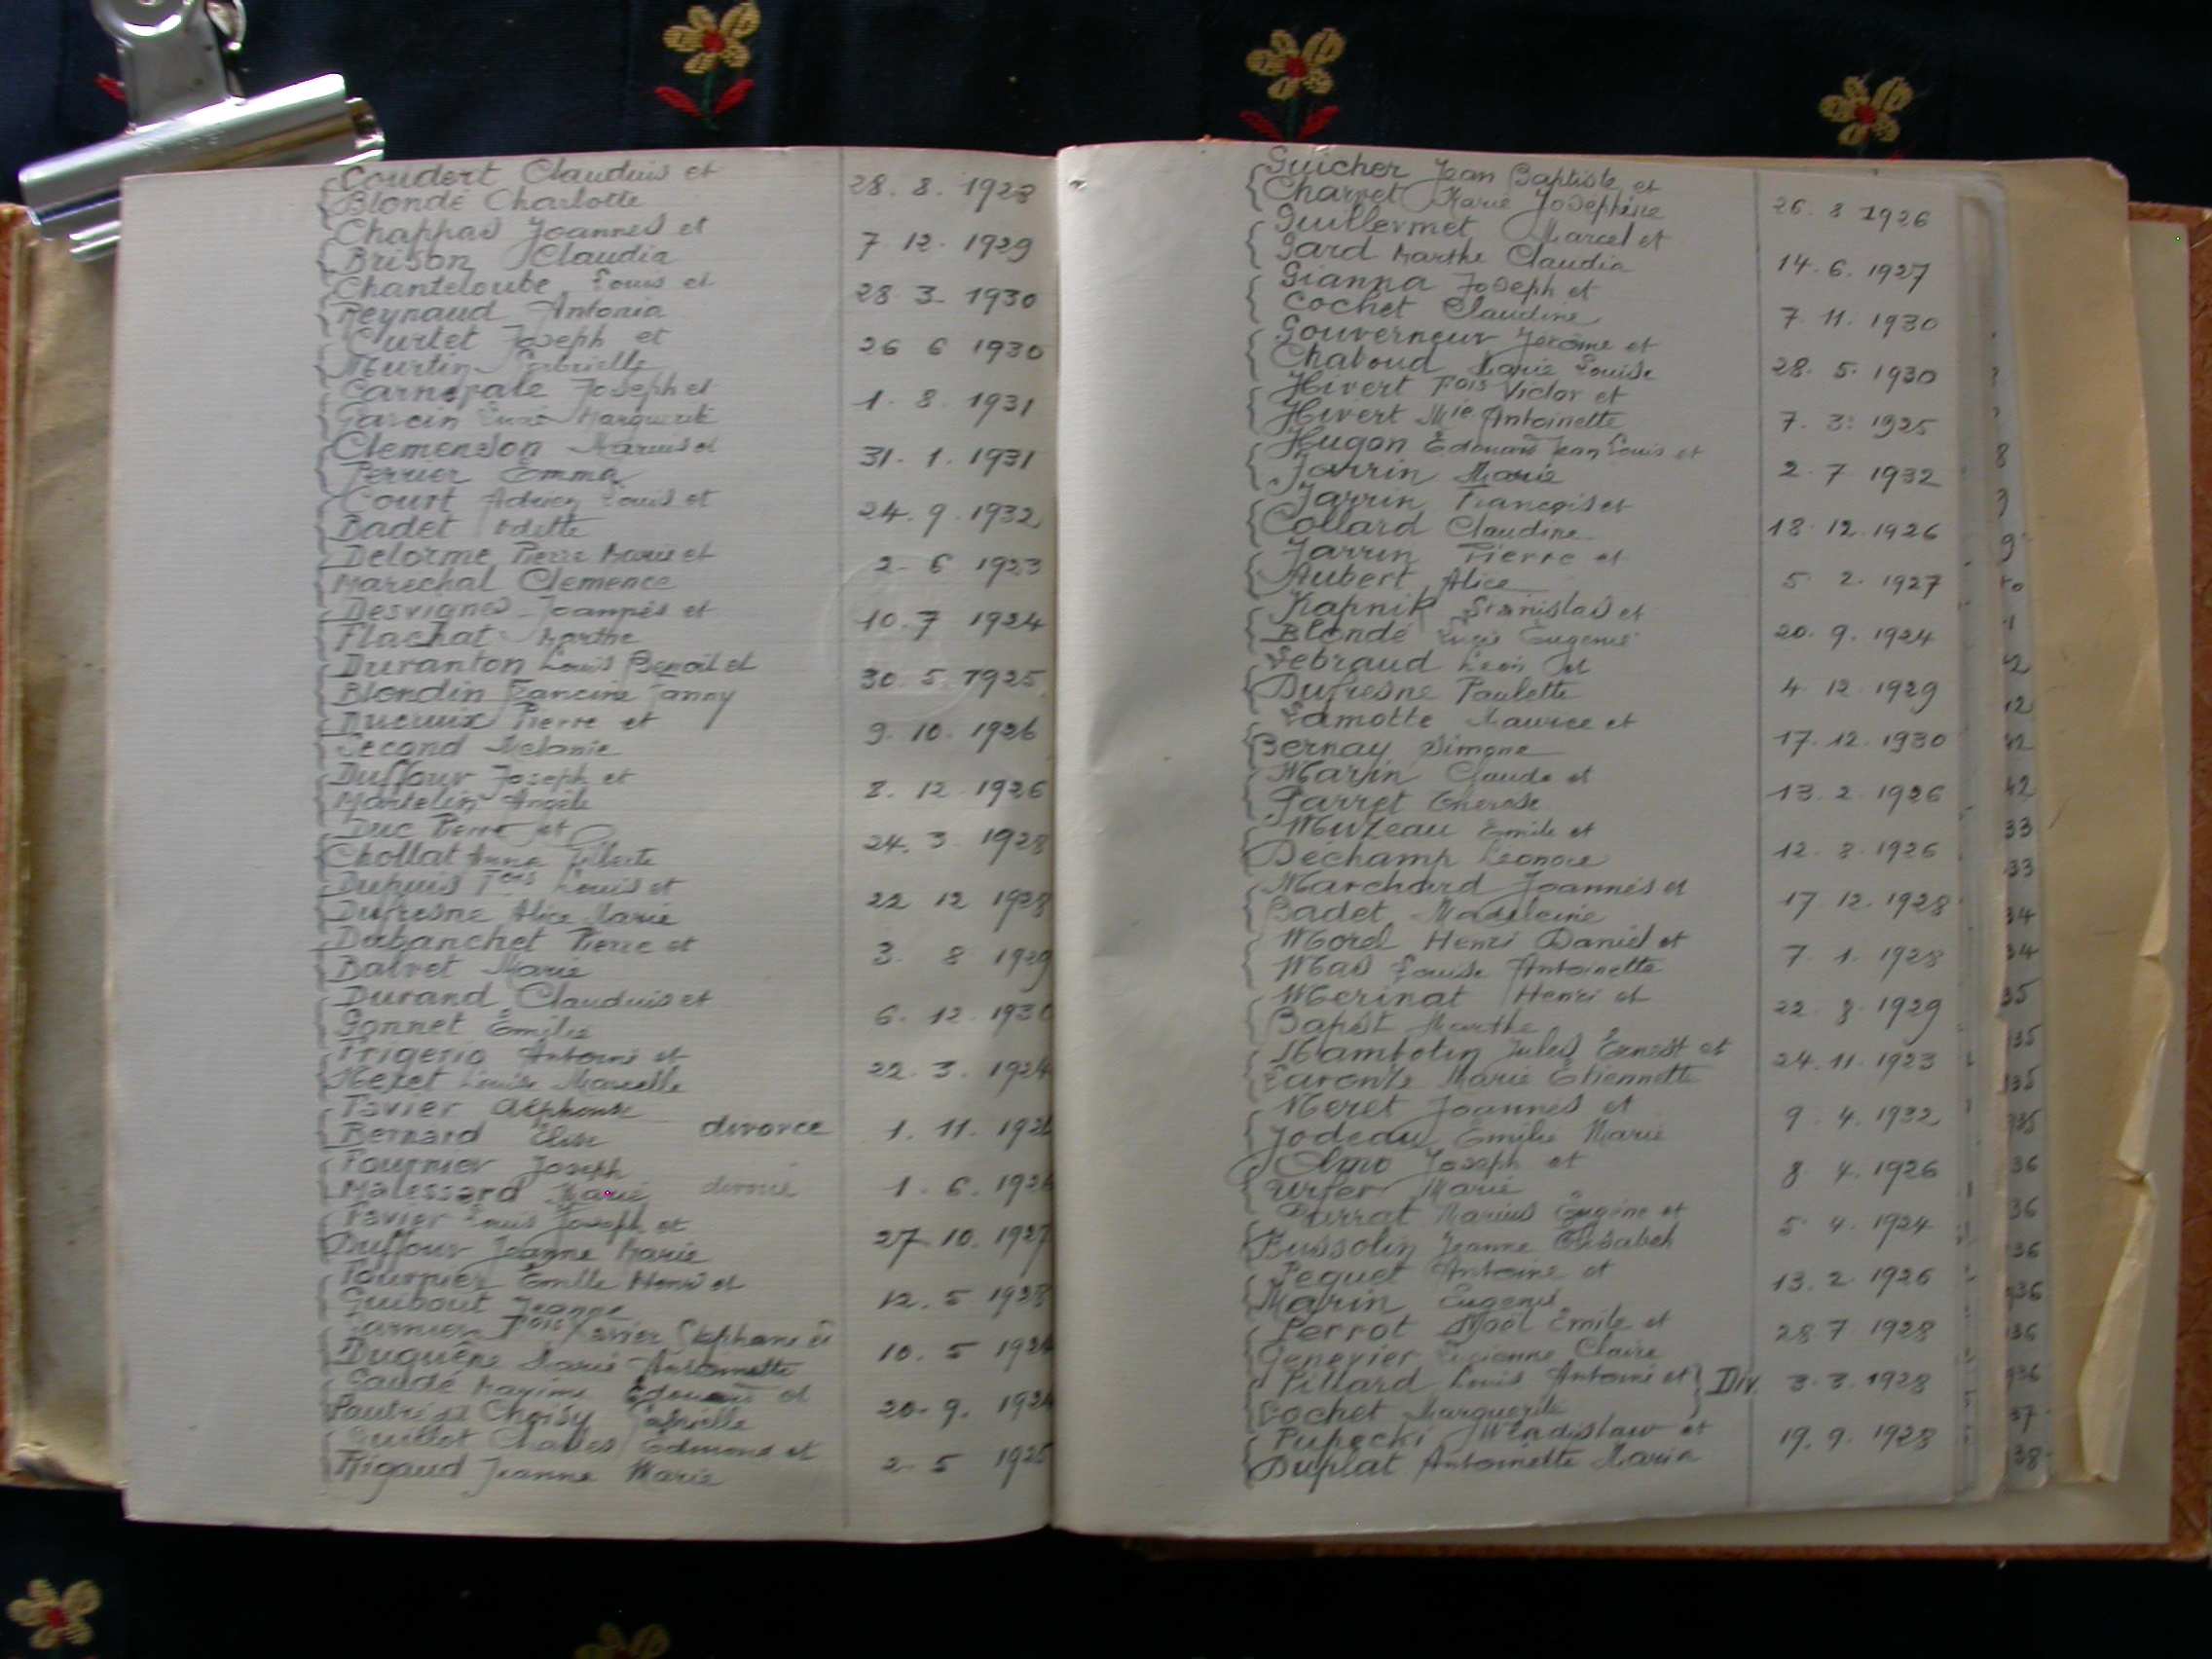 Coudert Claudius et
Blonde Charlotte 28. 8. 1928
Chappas Joannes et
Brison Claudia 7. 12. 1929
Chanteloube Louis et
Reynaud Antonia 28. 3. 1930
Curtet Joseph et
Murtin Gabrielle 26 6 1930
Carnevale Joseph et
Garcin Marguerite 1. 8. 1931
Clemenson Marius et
Perrier Emma 31. 1. 1931
Court Adrien Louis et
Badet Odette 24. 9. 1932
Delorme Pierre Marie et
Marechal Clemence 2- 6 1923
Desvignes Joannès et
Flachat Marthe 10. 7 1924
Duranton Louis Benoit et
Blondin Francine Fanny 30. 5. 1925
Ducruix Pierre et
Second Melanie 9. 10. 1926
Duffour Joseph et
Martelin Angèle 8. 12 1926
Duc Pierre et
Chollat Anna 24. 3 1928
Dupuis Fois Louis et
Dufresne Alice Marie 22 12 1928
Dubanchet Pierre et
Balvet Marie 3. 8 1929
Durand Claudius et
Gonnet Emilie 6. 12. 1930
Frigerio Antoine et
Meret Louise Marcelle 22. 3. 1924
Favier Alphonse
Bernard Elise divorce 1. 11.
Fournier Joseph
Malessard Marie 1. 6.
Favier Louis Joseph et
Duffour Jeanne Marie 27 10. 1927
Fournier Emille Henri et
Guibout Jeanne 12. 5 1928
Garnier Fois Xavier Stephane et
Duguêne Marie Antoinette 10. 5
Gaudé Maxime Edouard et
Choisy Gabrielle 20. 9.
Guillot Charles Edmond et
Rigaud Jeanne Marie 2. 5 1925
Guicher Jean Baptiste et
Charvet Marie Josephine 26. 8 1926
Guillermet Marcel et
Gard Marthe Claudia 14. 6. 1927
Gianna Joseph et
Cochet Claudine 7. 11. 1930
Gouverneur Jerôme et
Chaboud Marie Louise 28. 5. 1930
Hivert Fois Victor et
Hivert Mie Antoinette 7. 3. 1925
Hugon Edouard Jean Louis et
Jarrin Marie 2. 7 1932
Jarrin François et
Collard Claudine 18. 12. 1926
Jarrin Pierre et
Aubert Alice 5. 2. 1927
Kapnik Stanislas et
Blonde Eugenie 20. 9. 1924
Lebraud Leon et
Dufresne Paulette 4. 12 1929
Lamotte Maurice et
Bernay Simone 17. 12. 1930
Marin Claude et
Garret Therese 13. 2. 1926
Muzeau Emile et
Dechamp Leonore 12. 8. 1926
Marchard Joannès et
Badet Madeleine 17. 12. 1928
Morel Henri Daniel et
Mas Louise Antoinette 7. 1. 1928
Merinat Henri et
Bapst Marthe 22. 8. 1929
Mambolin Jules Ernest et
Marie Etiennette 24. 11. 1923
Meret Joannès et
Jodeau Emilie Marie 9. 4. 1932
Olmo Joseph et
Urfer Marie 8 4. 1926
Purrat Marius Eugène et
Bussolin Jeanne Elisabeh 5. 4. 1924
Pequet Antoine et
Marin Eugenie 13. 2. 1926
Perrot Noël Emile et
Genevier Lucienne Claire 28 7 1928
Pillard Louis Antoine et
Cochet Marguerite Div. 3. 3. 1928
Pupecki Wladislaw et
Duplat Antoinette Maria 19. 9. 1928